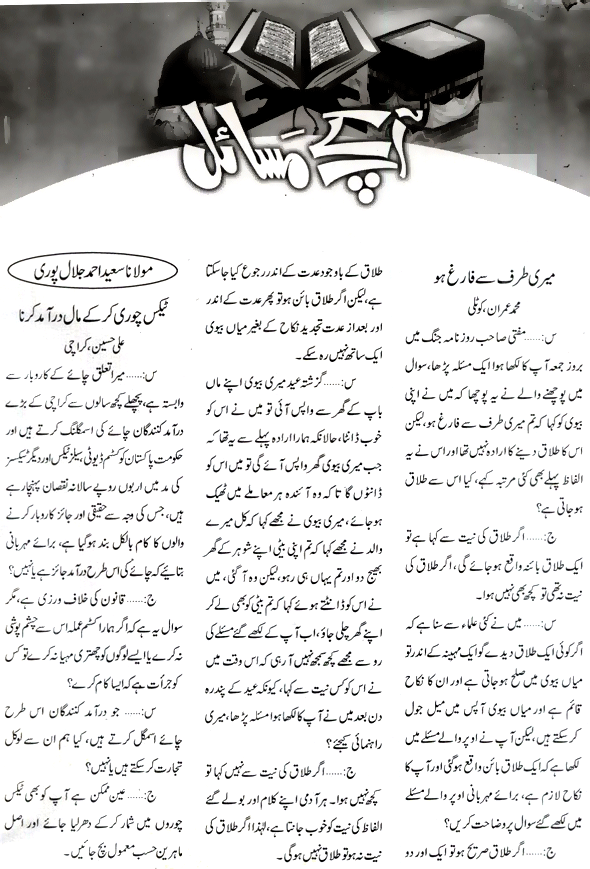 آپ کے مسائل
میری طرف سے فارغ ہو
محمد عمران، کوٹلی
س:...... مفتی صاحب روزنامہ جنگ میں
بروز جمعہ آپ کا لکھا ہوا ایک مسئلہ پڑھا، سوال
میں پوچھنے والے نے یہ پوچھا کہ میں نے اپنی
بیوی کو کہا کہ تم میری طرف سے فارغ ہو، لیکن
اس کا طلاق دینے کا ارادہ نہیں تھا اور اس نے یہ
الفاظ پہلے بھی کئی مرتبہ کہے، کیا اس سے طلاق
ہو جاتی ہے؟
ج:...... اگر طلاق کی نیت سے کہا ہے تو
ایک طلاق بائنہ واقع ہو جائے گی، اگر طلاق کی
نیت نہ تھی تو کچھ بھی نہیں ہوا۔
س:...... میں نے کئی علماء سے سنا ہے کہ
اگر کوئی ایک طلاق دیدے گو ایک مہینہ کے اندر تو
میاں بیوی میں صلح ہو جاتی ہے اور ان کا نکاح
قائم ہے اور میاں بیوی آپس میں میل جول
کر سکتے ہیں، لیکن آپ نے اوپر والے مسئلے میں
لکھا ہے کہ ایک طلاق بائن واقع ہوگئی اور آپ کا
نکاح لازم ہے، برائے مہربانی اوپر والے مسئلہ
میں لکھے گئے سوال پر وضاحت کریں؟
ج:...... اگر طلاق صریح ہو تو ایک اور دو
طلاق کے باوجود عدت کے اندر رجوع کیا جاسکتا
ہے، لیکن اگر طلاق بائن ہو تو پھر عدت کے اندر
اور بعد از عدت تجدید نکاح کے بغیر میاں بیوی
ایک ساتھ نہیں رہ سکے۔
س:...... گزشتہ عید میری بیوی اپنے ماں
باپ کے گھر سے واپس آئی تو میں نے اس کو
خوب ڈانٹا، حالانکہ ہمارا ارادہ پہلے سے یہ تھا کہ
جب میری بیوی گھر واپس آئے گی تو میں اس کو
ڈانٹوں گا تاکہ وہ آئندہ ہر معاملے میں ٹھیک
ہو جائے، میری بیوی نے مجھے کہا کہ کل میرے
والد نے مجھے کہا کہ تم اپنی بیٹی اپنے شوہر کے گھر
بھیج دو اور تم یہاں ہی رہو، لیکن وہ آ گئی، میں
نے اس کو ڈانٹتے ہوئے کہا کہ تم بیٹی کو بھی لے کر
اپنے گھر چلی جاؤ، اب آپ کے لکھے گئے مسئلے کی
رو سے مجھے کچھ سمجھ نہیں آ رہی کہ اس وقت میں
نے اس کو کس نیت سے کہا، کیونکہ عید کے پندرہ
دن بعد میں نے آپ کا لکھا ہوا مسئلہ پڑھا، میری
راہنمائی کیجئے؟
ج:...... اگر طلاق کی نیت سے نہیں کہا تو
کچھ نہیں ہوا۔ ہر آدمی اپنے کلام اور بولے گئے
الفاظ کی نیت کو خوب جانتا ہے، لہٰذا اگر طلاق کی
نیت نہ ہو تو طلاق نہیں ہوگی۔
مولانا سعید احمد جلال پوری
ٹیکس چوری کر کے مال درآمد کرنا
علی حسین، کراچی
س:...... میرا تعلق چائے کے کاروبار سے
وابستہ ہے، پچھلے کچھ سالوں سے کراچی کے بڑے
درآمد کنندگان چائے کی اسمگلنگ کرتے ہیں اور
حکومت پاکستان کو کسٹم ڈیوٹی، سیلز ٹیکس اور دیگر ٹیکسز
کی مد میں اربوں روپے سالانہ نقصان پہنچا رہے
ہیں، جس کی وجہ سے حقیقی اور جائز کاروبار کرنے
والوں کا کام بالکل بند ہو گیا ہے، برائے مہربانی
بتائیے کہ چائے کی اس طرح درآمد جائز ہے یا نہیں؟
ج:...... قانون کی خلاف ورزی ہے، مگر
سوال یہ ہے کہ اگر ہمارا کسٹم عملہ اس سے چشم پوشی
نہ کرے یا ایسے لوگوں کو چھتری مہیا نہ کرے تو کس
کو جرأت ہے کہ ایسا کام کرے؟
س:...... جو درآمد کنندگان اس طرح
چائے اسمگل کرتے ہیں، کیا ہم ان سے لوکل
تجارت کر سکتے ہیں یا نہیں؟
ج:...... عین ممکن ہے آپ کو بھی ٹیکس
چوروں میں شمار کر کے دھر لیا جائے اور اصل
ماہرین حسب معمول بچ جائیں۔